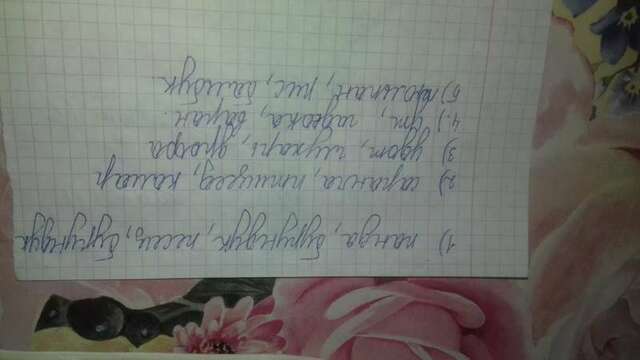 1) панда, бурундук, песец, бурундук
2) саранча, птицеед, комар
3) удот, глухарь, дрофа
4.) уж, гадюка, варан.
5) тюльпан, рис, бамбук